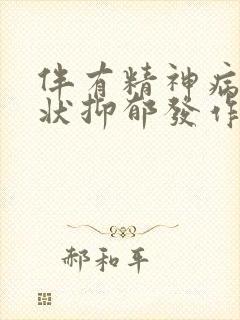 伴有精神病
状抑郁發作
郝和平